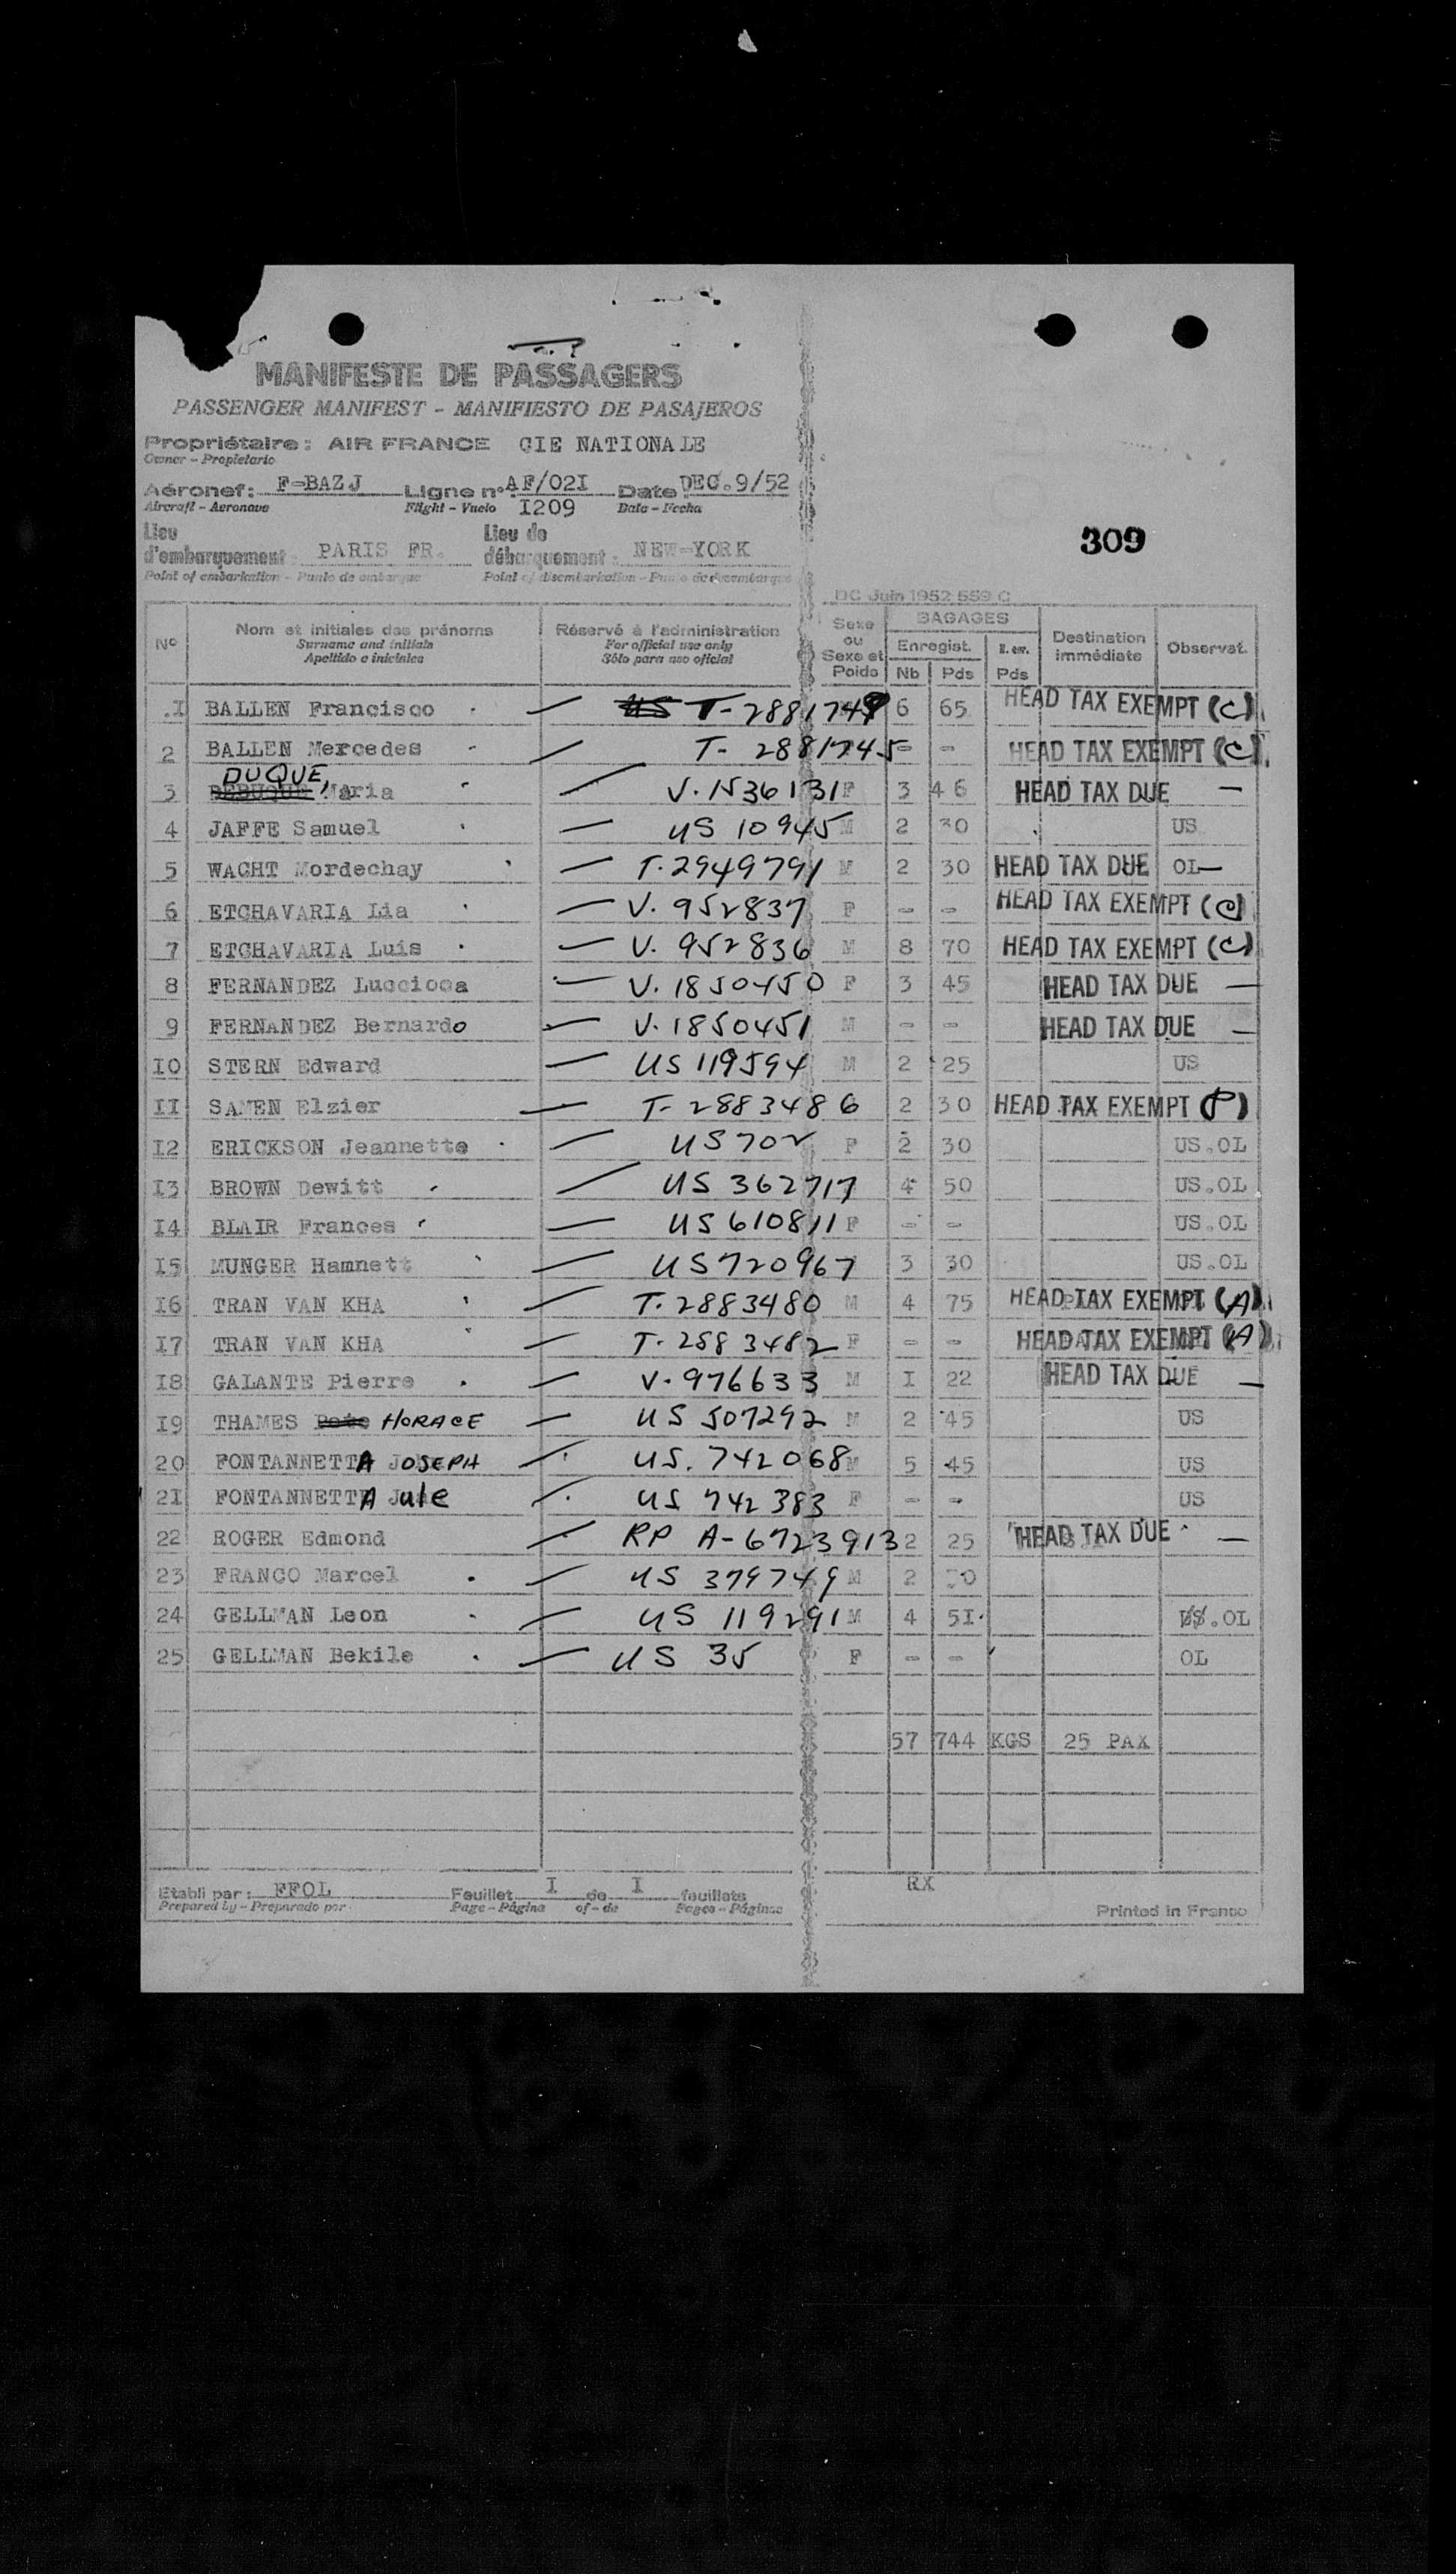 MANIFESTE DE PASSAGERS
PASSENGER MANIFEST - MANIFIESTO DE PASAJEROS
Propriétaire : AIR FRANCE CIE NATIONALE
Owner - Propietario
Aéronef : F-BAZJ Ligne n° AF/02I Date : DEC.9/52
Aircraft - Aeronave Flight - Vuelo I209 Date - Fecha
Lieu d'embarquement : PARIS FR. Lieu de débarquement : NEW-YORK
Point of embarkation - Punto de embarque Point of disembarkation - Punto de desembarque
309
DC Juin 1952 559 C
N° Nom et initiales des prénoms Réservé à l'administration Sexe ou Sexe et Poids BAGAGES Destination immédiate Observat.
Surname and initials For official use only Enregist.
Apellido e iniciales Sólo para uso oficial Nb Pds Pds
.I BALLEN Francisco — US T-2881749 6 65 HEAD TAX EXEMPT (C)
2 BALLEN Mercedes — T- 2881745 - - HEAD TAX EXEMPT (C)
3 DUQUE, Maria — V.1536131 F 3 46 HEAD TAX DUE —
4 JAFFE Samuel — US 10945 M 2 30 US
5 WACHT Mordechay — T.2949791 M 2 30 HEAD TAX DUE OL—
6 ETCHAVARIA Lia — V. 952837 F - - HEAD TAX EXEMPT (C)
7 ETCHAVARIA Luis — V. 952836 M 8 70 HEAD TAX EXEMPT (C)
8 FERNANDEZ Lucciosa — V.1850450 F 3 45 HEAD TAX DUE —
9 FERNANDEZ Bernardo — V.1850451 M - - HEAD TAX DUE —
IO STERN Edward — US 119594 M 2 25 US
II SAMEN Elzier — T-2883486 2 30 HEAD TAX EXEMPT (P)
I2 ERICKSON Jeannette — US 702 F 2 30 US.OL
I3 BROWN Dewitt — US 362717 4 50 US.OL
I4 BLAIR Frances — US 610811 F - - US.OL
I5 MUNGER Hamnett — US 720967 3 30 US.OL
I6 TRAN VAN KHA — T.2883480 M 4 75 HEAD TAX EXEMPT (A)
I7 TRAN VAN KHA — T.2883482 F - - HEAD TAX EXEMPT (A)
I8 GALANTE Pierre — V.976633 M I 22 HEAD TAX DUE —
I9 THAMES HORACE — US 507292 M 2 45 US
20 FONTANNETTA JOSEPH — US. 742068 M 5 45 US
2I FONTANNETTA Jule — US 742383 F - - US
22 ROGER Edmond — RP A-6723913 2 25 HEAD TAX DUE —
23 FRANCO Marcel — US 379749 M 2
24 GELLMAN Leon — US 119291 M 4 5I US.OL
25 GELLMAN Bekile — US 35 F - - OL
57 744 KGS 25 PAX
Etabli par : FFOL Feuillet I de I feuillets RX
Prepared by - Preparado por Page - Página of - de Pages - Páginas Printed in France